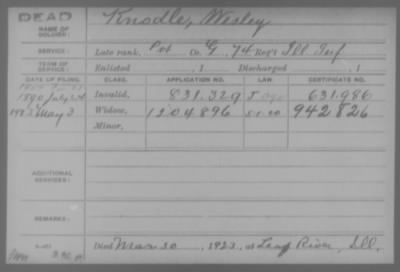 DEAD
NAME OF SOLDIER:
Knodle, Wesley
SERVICE:
Late rank, Pvt Co. G, 74 Reg't Ill Inf
TERM OF SERVICE:
Enlisted , 1 Discharged , 1
DATE OF FILING. CLASS. APPLICATION NO. LAW. CERTIFICATE NO.
1890 July 24 Invalid, 831,329 631.986
May 3 Widow, 1204896 942826
Minor,
ADDITIONAL SERVICES:
REMARKS:
Died Mar 30, 1923, at Leaf River, Ill.